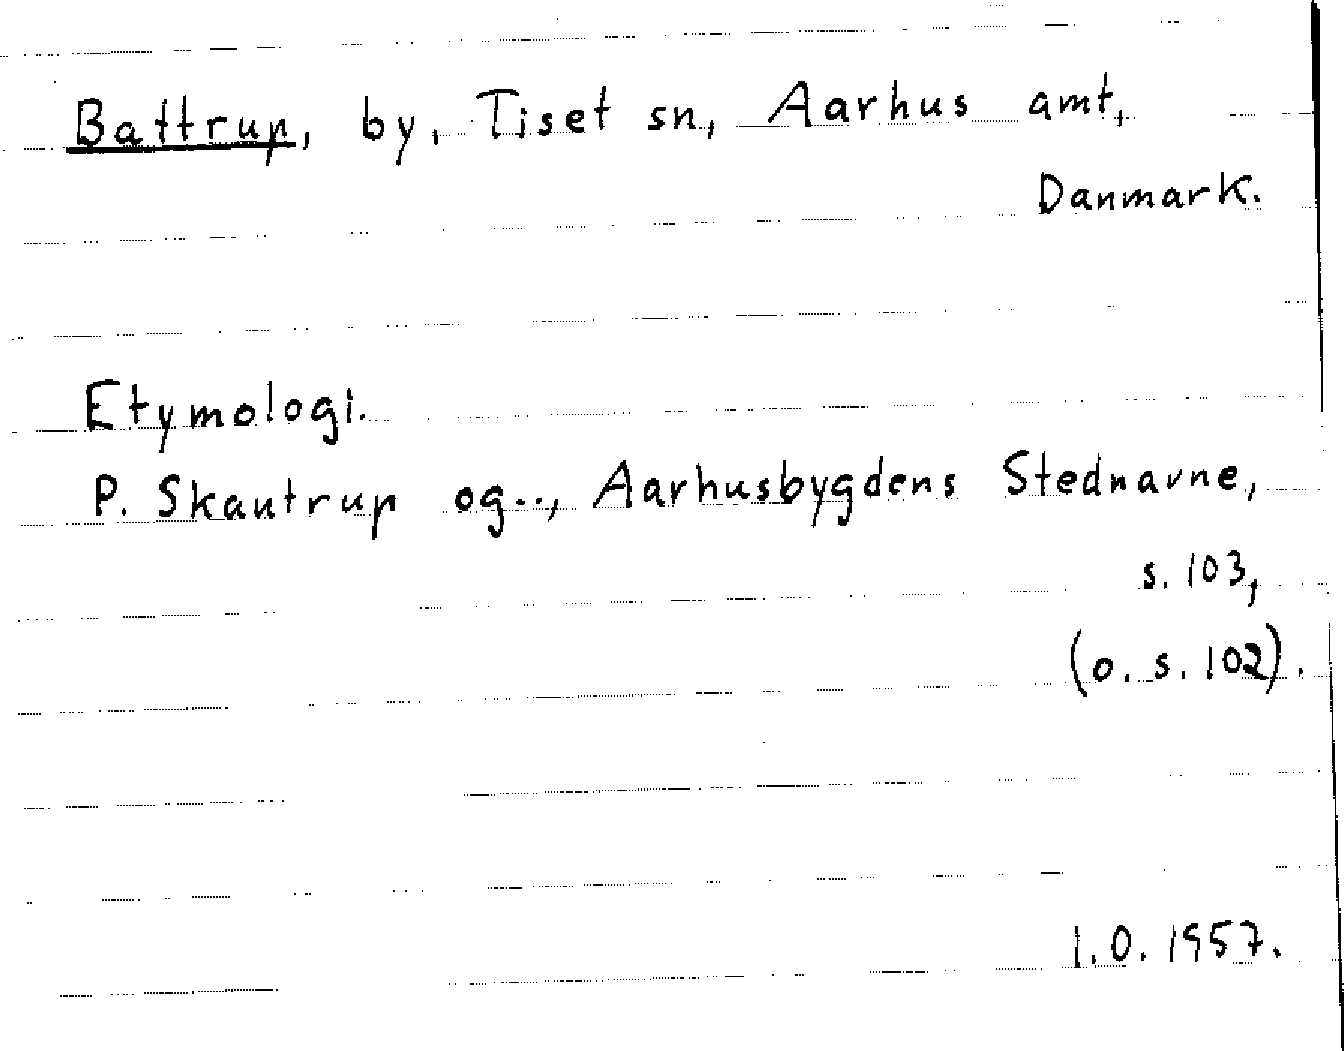 Battrup, by, Tiset sn, Aarhus amt,
Danmark.
Etymologi.
P. Skautrup og.., Aarhusbygdens Stednavne,
s. 103,
(o. s. 102).
I.O. 1957.